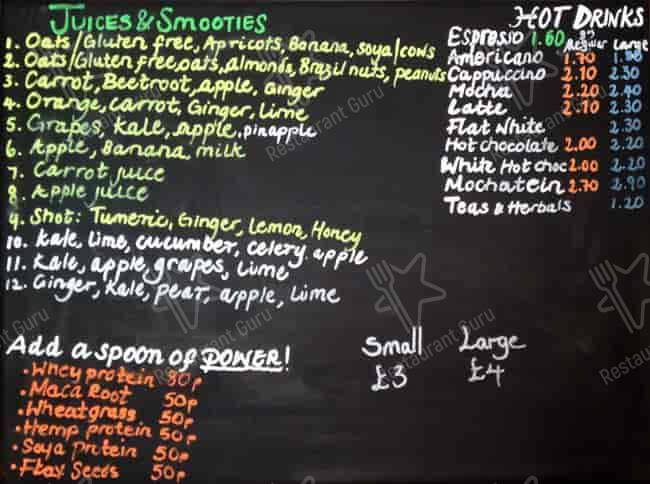 JUICES & SMOOTIES
1. Oats/Gluten free, Apricots, Banana, soya/cows
2. Oats/Gluten free, oats, almonds, Brazil nuts, peanuts
3. Carrot, Beetroot, apple, Ginger
4. Orange, carrot, Ginger, Lime
5. Grapes, kale, apple, pineapple
6. Apple, Banana, milk
7. Carrot juice
8. Apple juice
9. Shot: Tumeric, Ginger, Lemon, Honey
10. Kale, Lime, cucumber, celery. apple
11. Kale, apple, grapes, Lime
12. Ginger, Kale, pear, apple, Lime
Add a spoon of POWER!
• Whey protein 80p
• Maca Root 50p
• Wheatgrass 50p
• Hemp protein 50p
• Soya protein 50p
• Flax Seeds 50p
Small Large
£3 £4
HOT DRINKS
Espresso 1.60
Regular Large
Americano 1.70
Cappuccino 2.10 2.30
Mocha 2.20 2.40
Latte 2.10 2.30
Flat White 2.30
Hot chocolate 2.00 2.20
White Hot choc 2.00 2.20
Mochatein 2.70 2.90
Teas & Herbals 1.20
Restaurant Guru
Restaurant Guru
Restaurant Guru
Restaurant Guru